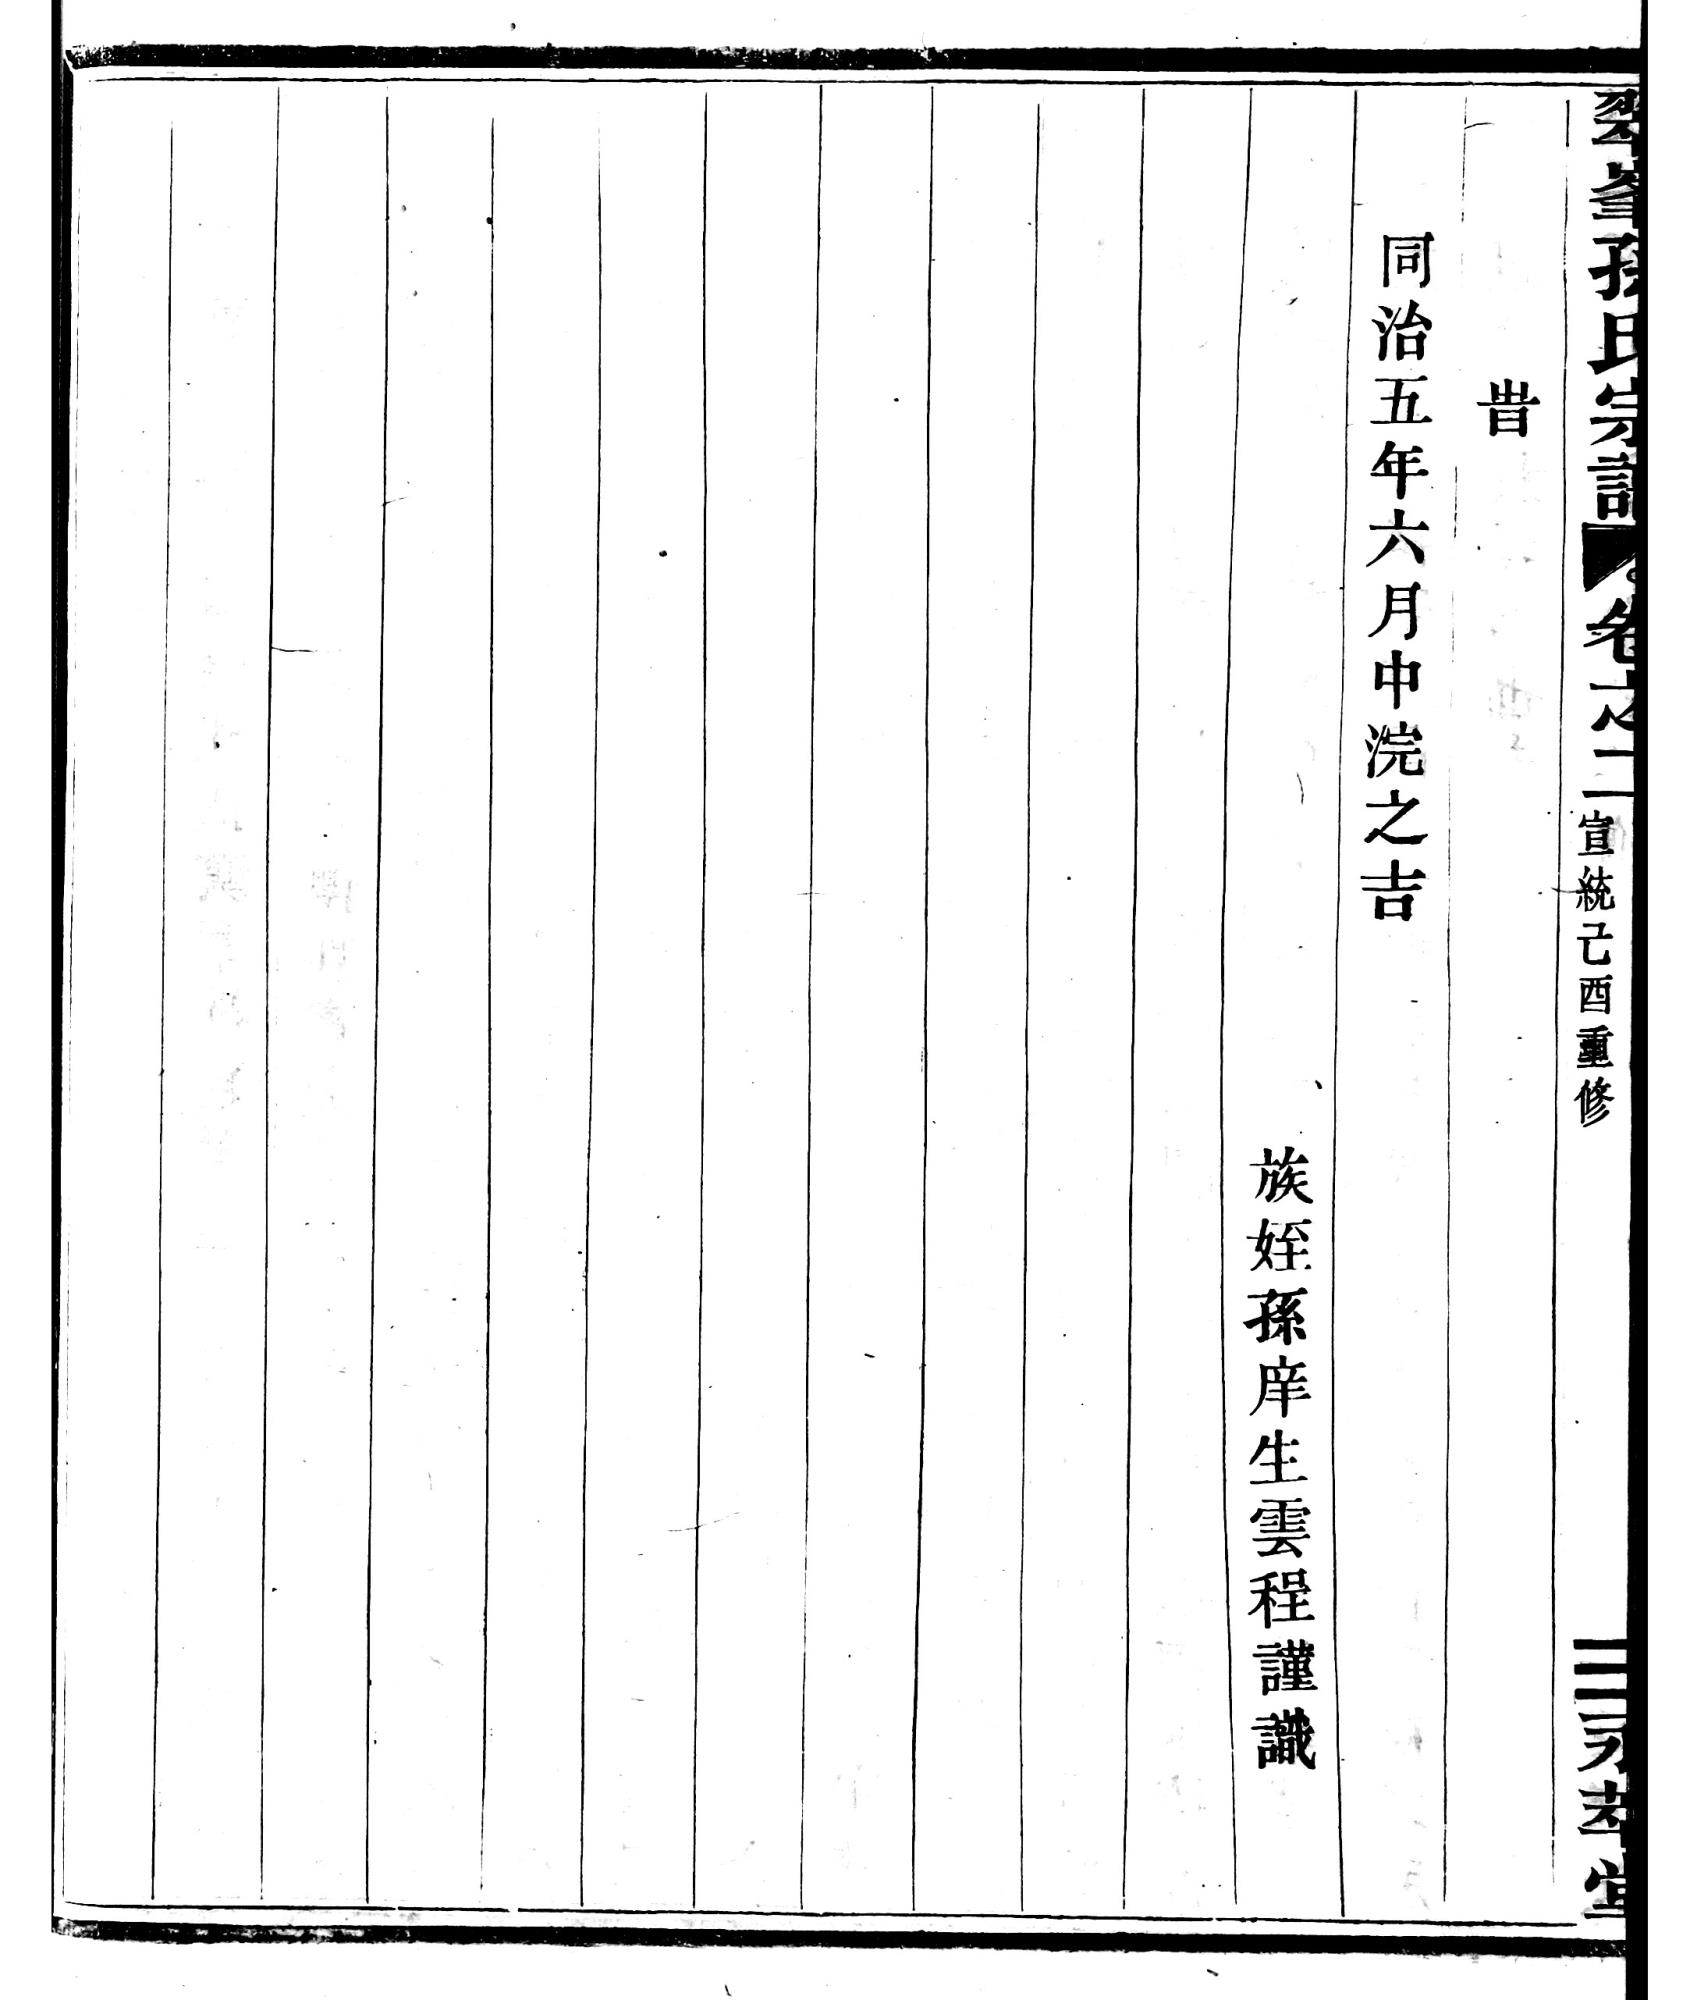 孫氏宗譜 卷之二 宣統己酉重修
旹
同治五年六月中浣之吉
族姪孫庠生雲程謹識